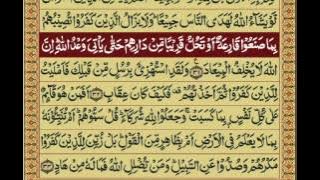 لَّوْ يَشَآءُ اللّٰهُ لَهَدَى النَّاسَ جَمِيْعًا ؕ وَلَا يَزَالُ الَّذِيْنَ كَفَرُوْا تُصِيْبُهُمْ
بِمَا صَنَعُوْا قَارِعَةٌ اَوْ تَحُلُّ قَرِيْبًا مِّنْ دَارِهِمْ حَتّٰى يَاْتِيَ وَعْدُ اللّٰهِ ؕ اِنَّ
اللّٰهَ لَا يُخْلِفُ الْمِيْعَادَ ﴿۳۱﴾ وَلَقَدِ اسْتُهْزِئَ بِرُسُلٍ مِّنْ قَبْلِكَ فَاَمْلَيْتُ
لِلَّذِيْنَ كَفَرُوْا ثُمَّ اَخَذْتُهُمْ ۫ فَكَيْفَ كَانَ عِقَابِ ﴿۳۲﴾ اَفَمَنْ هُوَ قَآئِمٌ
عَلٰى كُلِّ نَفْسٍۭ بِمَا كَسَبَتْ ۚ وَجَعَلُوْا لِلّٰهِ شُرَكَآءَ ؕ قُلْ سَمُّوْهُمْ ؕ اَمْ تُنَبِّـُٔوْنَهٗ
بِمَا لَا يَعْلَمُ فِي الْاَرْضِ اَمْ بِظَاهِرٍ مِّنَ الْقَوْلِ ؕ بَلْ زُيِّنَ لِلَّذِيْنَ كَفَرُوْا
مَكْرُهُمْ وَصُدُّوْا عَنِ السَّبِيْلِ ؕ وَمَنْ يُّضْلِلِ اللّٰهُ فَمَا لَهٗ مِنْ هَادٍ ﴿۳۳﴾